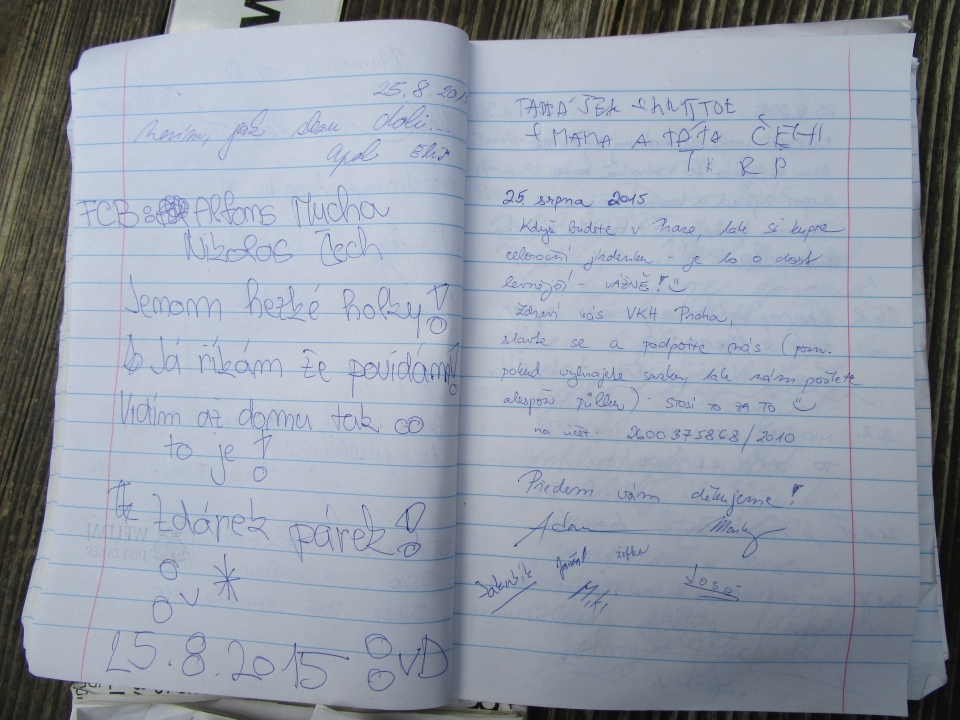 25.8.2015
Nevím, jak slezu dolů...
FCB Alfons Mucha
Nikolas Čech
Jenom hezké holky!
Já říkám že povídám!
Vidím až domu tak co
to je!
Zdárek párek!
25.8.2015 :vD
MAMA A TÁTA ČEŠI
25 srpna 2015
Když budete v Praze, tak si kupte
celoroční jízdenku - je to o dost
levnější - VÁŽNĚ!
Zdraví vás VKH Praha,
slavte se a podpořte nás (pozn.
pokud vyhrajete sazku, tak nám pošlete
alespoň půlku) - stojí to za to
na účet 2600375868/2010
Předem vám děkujeme!
Adam
Jakubík
Miki